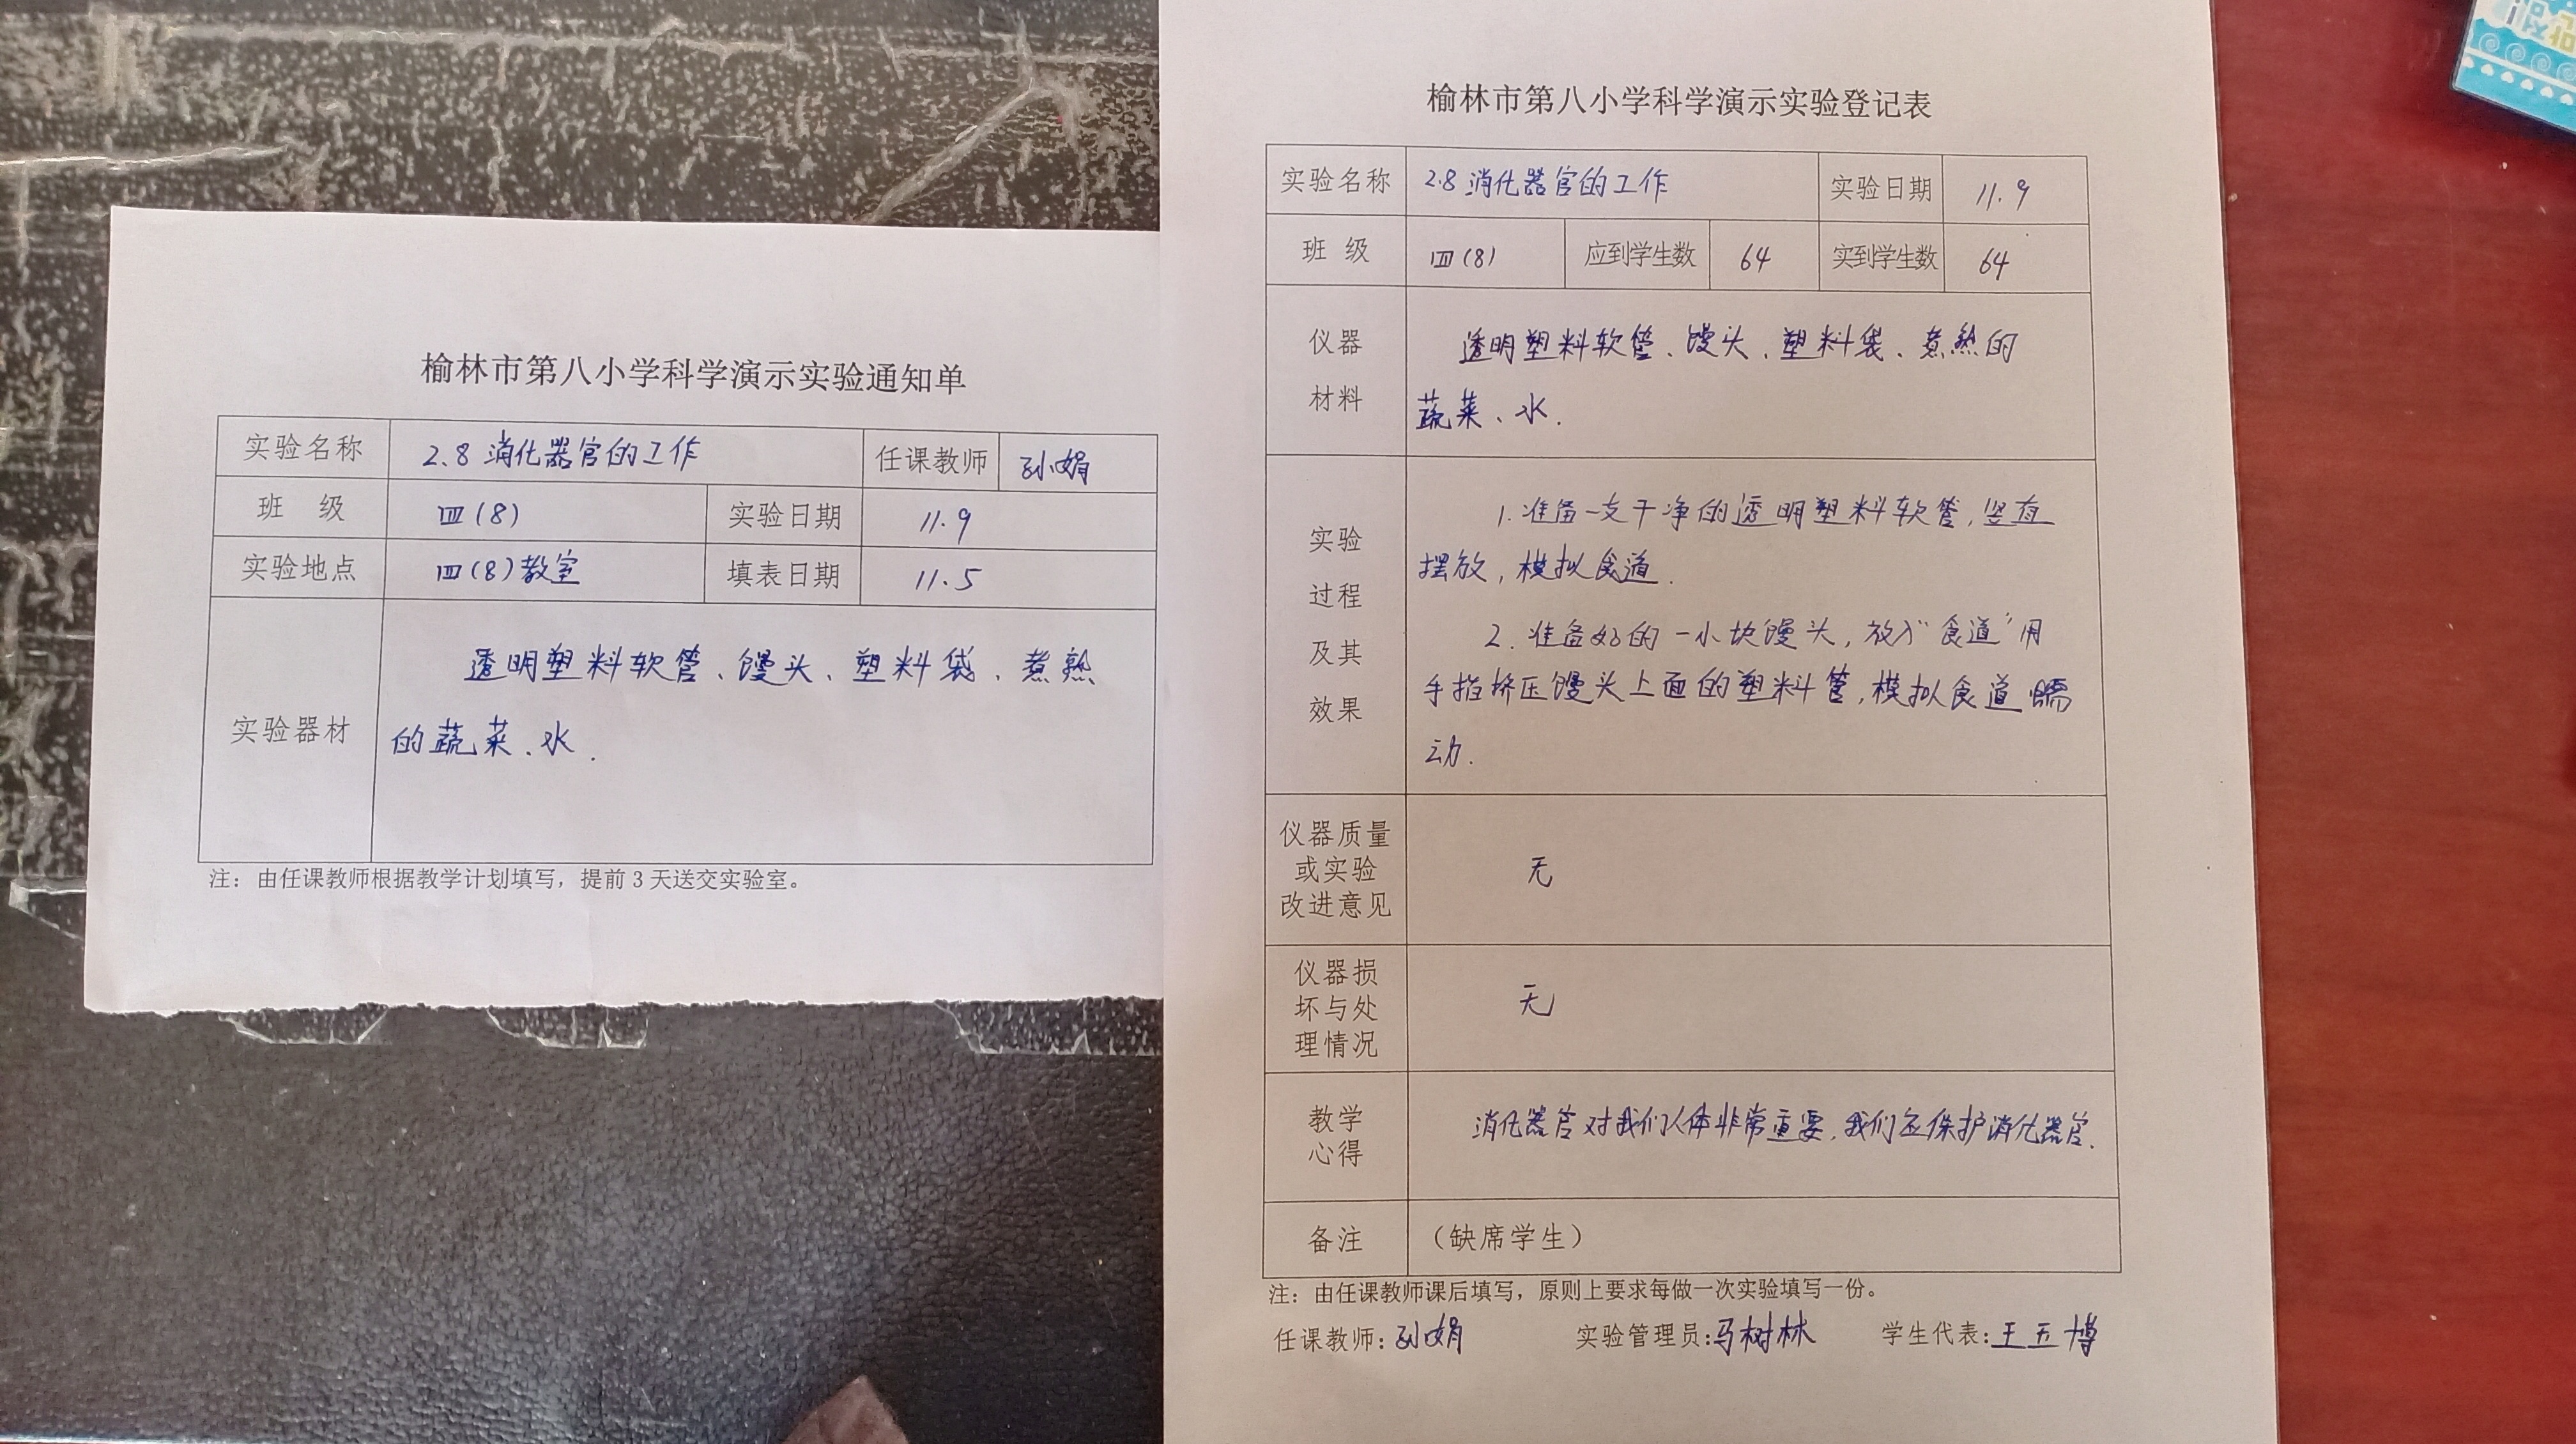 榆林市第八小学科学演示实验通知单
实验名称 2.8 消化器官的工作 任课教师 孙娟
班 级 四(8) 实验日期 11.9
实验地点 四(8)教室 填表日期 11.5
实验器材
透明塑料软管、馒头、塑料袋、煮熟
的蔬菜、水.
注：由任课教师根据教学计划填写，提前 3 天送交实验室。
榆林市第八小学科学演示实验登记表
实验名称 2.8 消化器官的工作 实验日期 11.9
班 级 四(8) 应到学生数 64 实到学生数 64
仪器
材料
透明塑料软管、馒头、塑料袋、煮熟的
蔬菜、水.
实验
过程
及其
效果
1.准备一支干净的透明塑料软管,竖直
摆放,模拟食道.
2.准备好的一小块馒头,放入“食道”用
手指挤压馒头上面的塑料管,模拟食道蠕
动.
仪器质量
或实验
改进意见
无
仪器损
坏与处
理情况
无
教学
心得
消化器官对我们人体非常重要,我们应保护消化器官.
备注 （缺席学生）
注：由任课教师课后填写，原则上要求每做一次实验填写一份。
任课教师:孙娟 实验管理员:马树林 学生代表:王五博